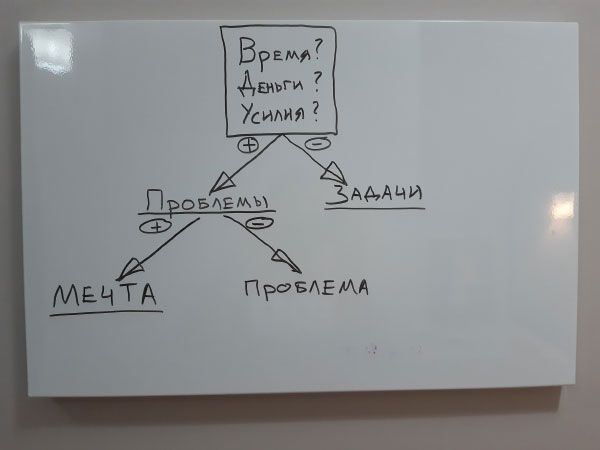 Время?
Деньги?
Усилия?
+ −
Проблемы Задачи
+ −
МЕЧТА ПРОБЛЕМА